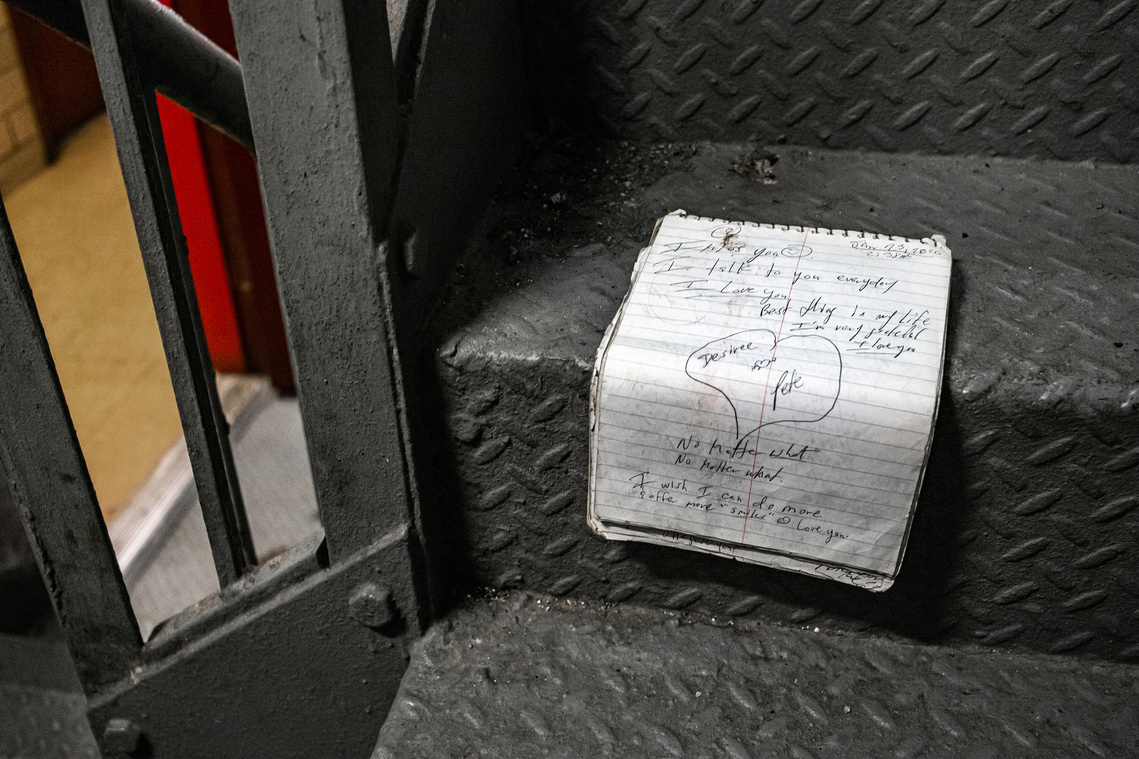 I miss you
I talk to you everyday
I Love you
Best thing in my life
I'm very grateful
I love you
Desiree
Pete
No Matter what
No Matter what.
I wish I can do more
more "smiles" Love you.